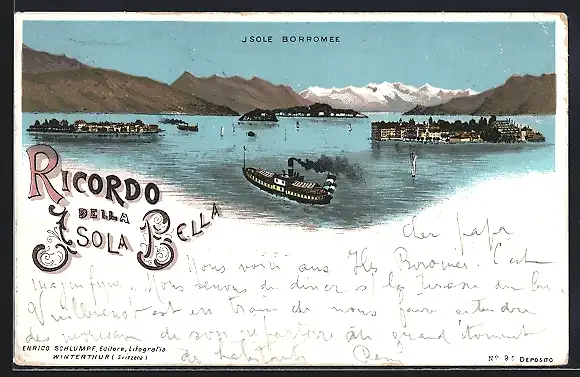 JSOLE BORROMEE
RICORDO
DELLA
ISOLA BELLA
cher papa
Nous voiçi aux Iles Boromées. C'est
magnifique. Nous venons de diner s/ la terasse du
est en train de nous faire entendre
des morceaux de son au grand étonnement
de
ENRICO SCHLUMPF, Editore, Litografia
WINTERTHUR (Svizzera)
DEPOSITO